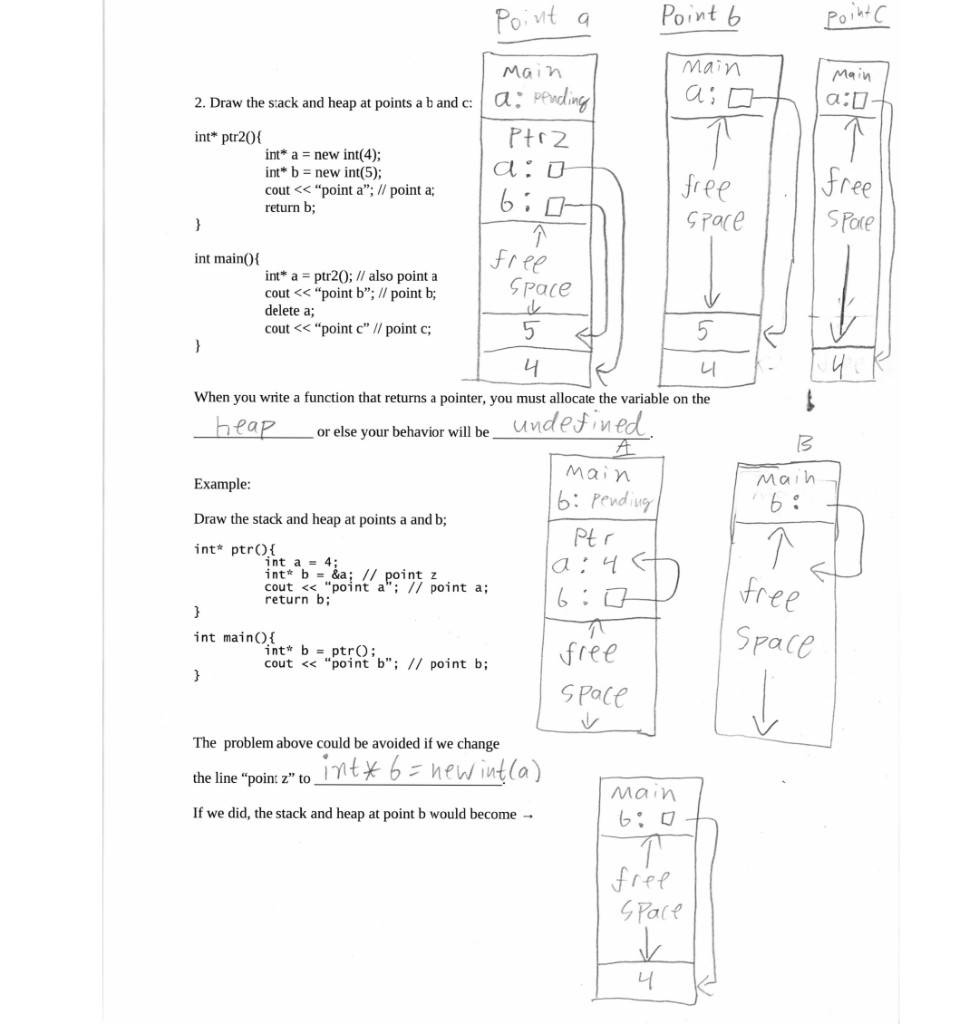 Point a
Point b
Point C
Main
a: pending
Ptr2
a:
b:
free
space
5
4
Main
a:
free
space
5
4
Main
a:
free
space
4
2. Draw the stack and heap at points a b and c:
int* ptr2(){
int* a = new int(4);
int* b = new int(5);
cout << “point a”; // point a;
return b;
}
int main(){
int* a = ptr2(); // also point a
cout << “point b”; // point b;
delete a;
cout << “point c” // point c;
}
When you write a function that returns a pointer, you must allocate the variable on the
heap or else your behavior will be undefined.
Example:
Draw the stack and heap at points a and b;
int* ptr(){
int a = 4;
int* b = &a; // point z
cout << "point a"; // point a;
return b;
}
int main(){
int* b = ptr();
cout << "point b"; // point b;
}
A
Main
b: Pending
Ptr
a: 4
b:
free
space
B
Main
b:
free
space
The problem above could be avoided if we change
the line “point z” to int* b = new int(a).
If we did, the stack and heap at point b would become →
Main
b:
free
space
4